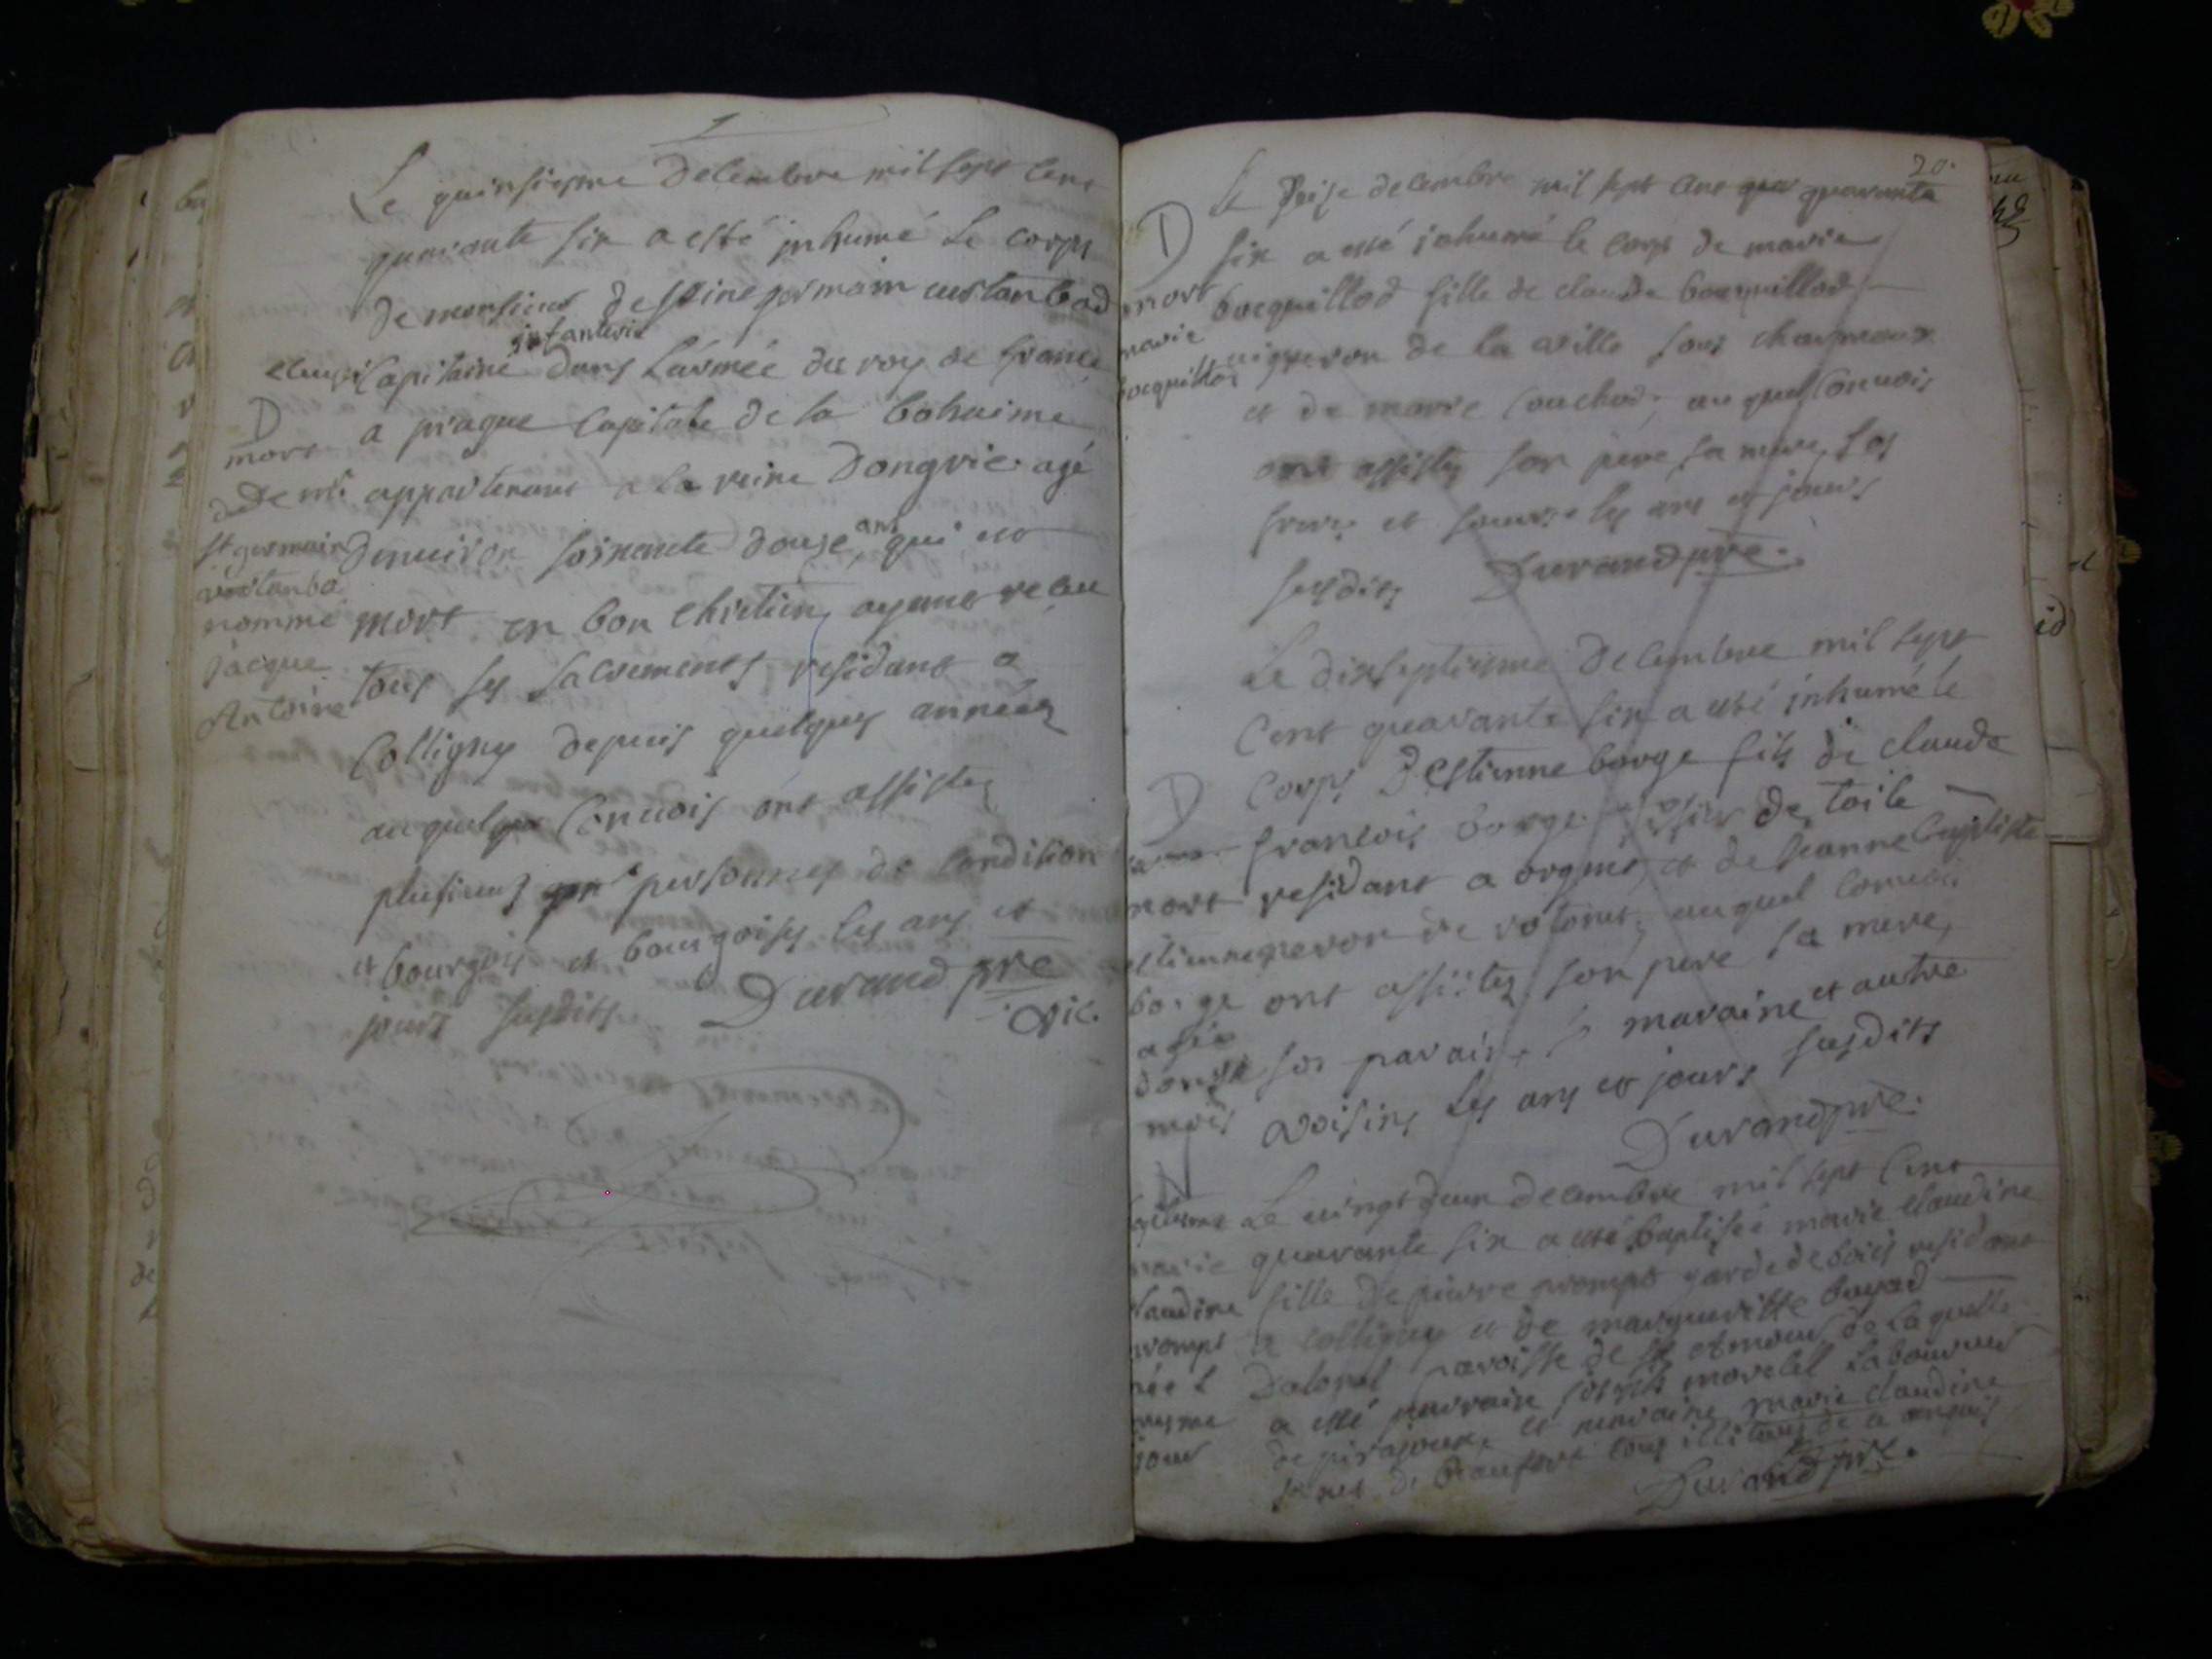 Le quinsiesme decembre mil sept cent
quarante six a esté inhumé le corps
de monsieur de st germain
capitaine infanterie dans l'armée du roy de france
a prague capitale de la bohaime
appartenant a la reine d'ongrie. agé
denuiron soixante douze ans qui est
mort en bon chretien, ayant recu
tous ses sacrements residant a
Colligny depuis quelques années
auquel conuois ont assistez
plusieurs personnes de condition
et bourgois et bourgoises les ans et
jours susdits Durand pre
vic.
D
mort
de mr
st germain
nommé
jacque
Antoine
20.
Le seise decembre mil sept cent quarante
six a esté inhumé le corps de marie
bocquillod fille de claude bocquillod
uigneron de la ville sous charmoux
et de marie couchod; auquel conuois
ont assistez son pere sa mere, ses
freres et soeurs les ans et jours
susdits Durand pre.
D
mort
marie
bocquillod
Le dixseptiesme decembre mil sept
cent quarante six a esté inhumé le
corps d'estienne borge fils de claude
françois borge de toile
residant a orgnet, et de jeanne baptiste
auquel conuois
ont assistez son pere sa mere,
son parain, marraine et autre
voisins les ans et jours susdits
Durand pre.
D
mort
estienne
borge
agé
donze
mois
Le uingt deux decembre mil sept cent
quarante six a esté baptisée marie claudine
fille de pierre prompt garde de bois residant
a colligny et de margueritte boyad
paroisse de st amour de laquelle
a esté parrain joseph morelet laboureur
de pirajoux, et maraine marie claudine
de beaufort tous illiterés de ce enquis
Durand pre.
N
baptesme
marie
claudine
prompt
née l
mesme
jour